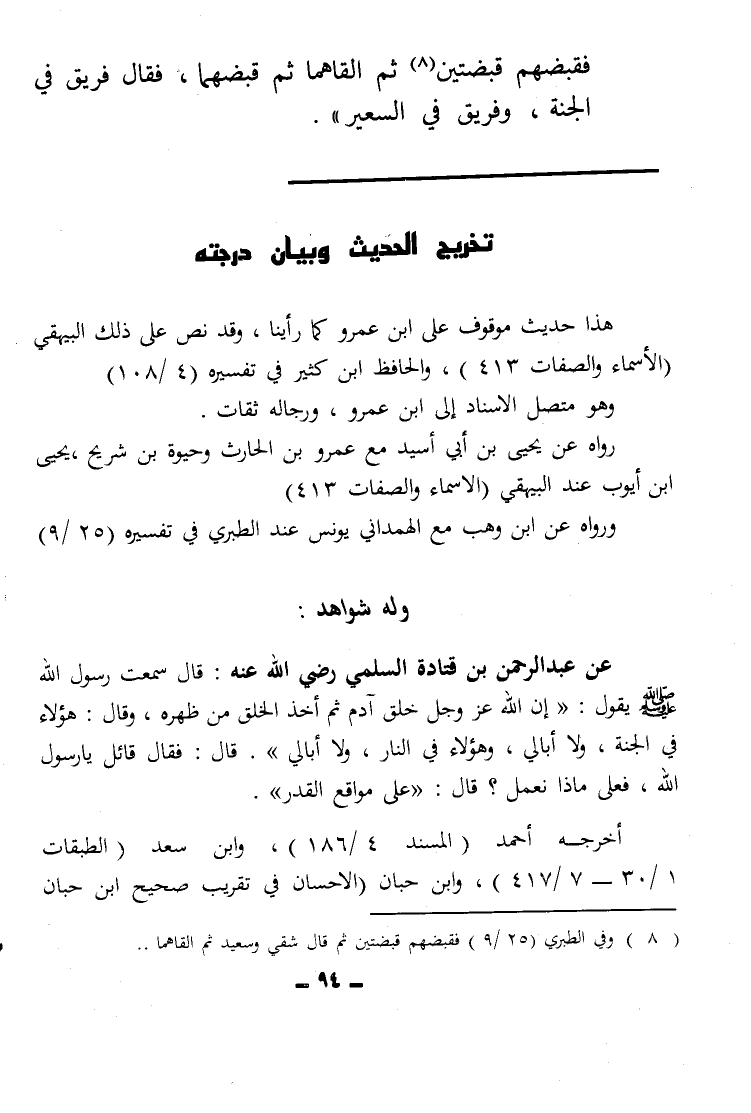 فقبضهم قبضتين(٨) ثم القاهما ثم قبضهما ، فقال فريق في
الجنة ، وفريق في السعير» .
تخريج الحديث وبيان درجته
هذا حديث موقوف على ابن عمرو كما رأينا ، وقد نص على ذلك البيهقي
(الأسماء والصفات ٤١٣ ) ، والحافظ ابن كثير في تفسيره (٤ /١٠٨)
وهو متصل الاسناد إلى ابن عمرو ، ورجاله ثقات .
رواه عن يحيى بن أبي أسيد مع عمرو بن الحارث وحيوة بن شريح ،يحيى
ابن أيوب عند البيهقي (الاسماء والصفات ٤١٣)
ورواه عن ابن وهب مع الهمداني يونس عند الطبري في تفسيره (٢٥ /٩)
وله شواهد :
عن عبدالرحمن بن قتادة السلمي رضي الله عنه : قال سمعت رسول الله
ﷺ يقول : « إن الله عز وجل خلق آدم ثم أخذ الخلق من ظهره ، وقال : هؤلاء
في الجنة ، ولا أبالي ، وهؤلاء في النار ، ولا أبالي » . قال : فقال قائل يارسول
الله ، فعلى ماذا نعمل ؟ قال : «على مواقع القدر» .
أخرجه أحمد ( المسند ٤ /١٨٦ ) ، وابن سعد ( الطبقات
١ /٣٠ — ٧ /٤١٧ ) ، وابن حبان (الاحسان في تقريب صحيح ابن حبان
( ٨ ) وفي الطبري (٢٥ /٩ ) فقبضهم قبضتين ثم قال شقي وسعيد ثم القاهما ..
– ٩٤ –